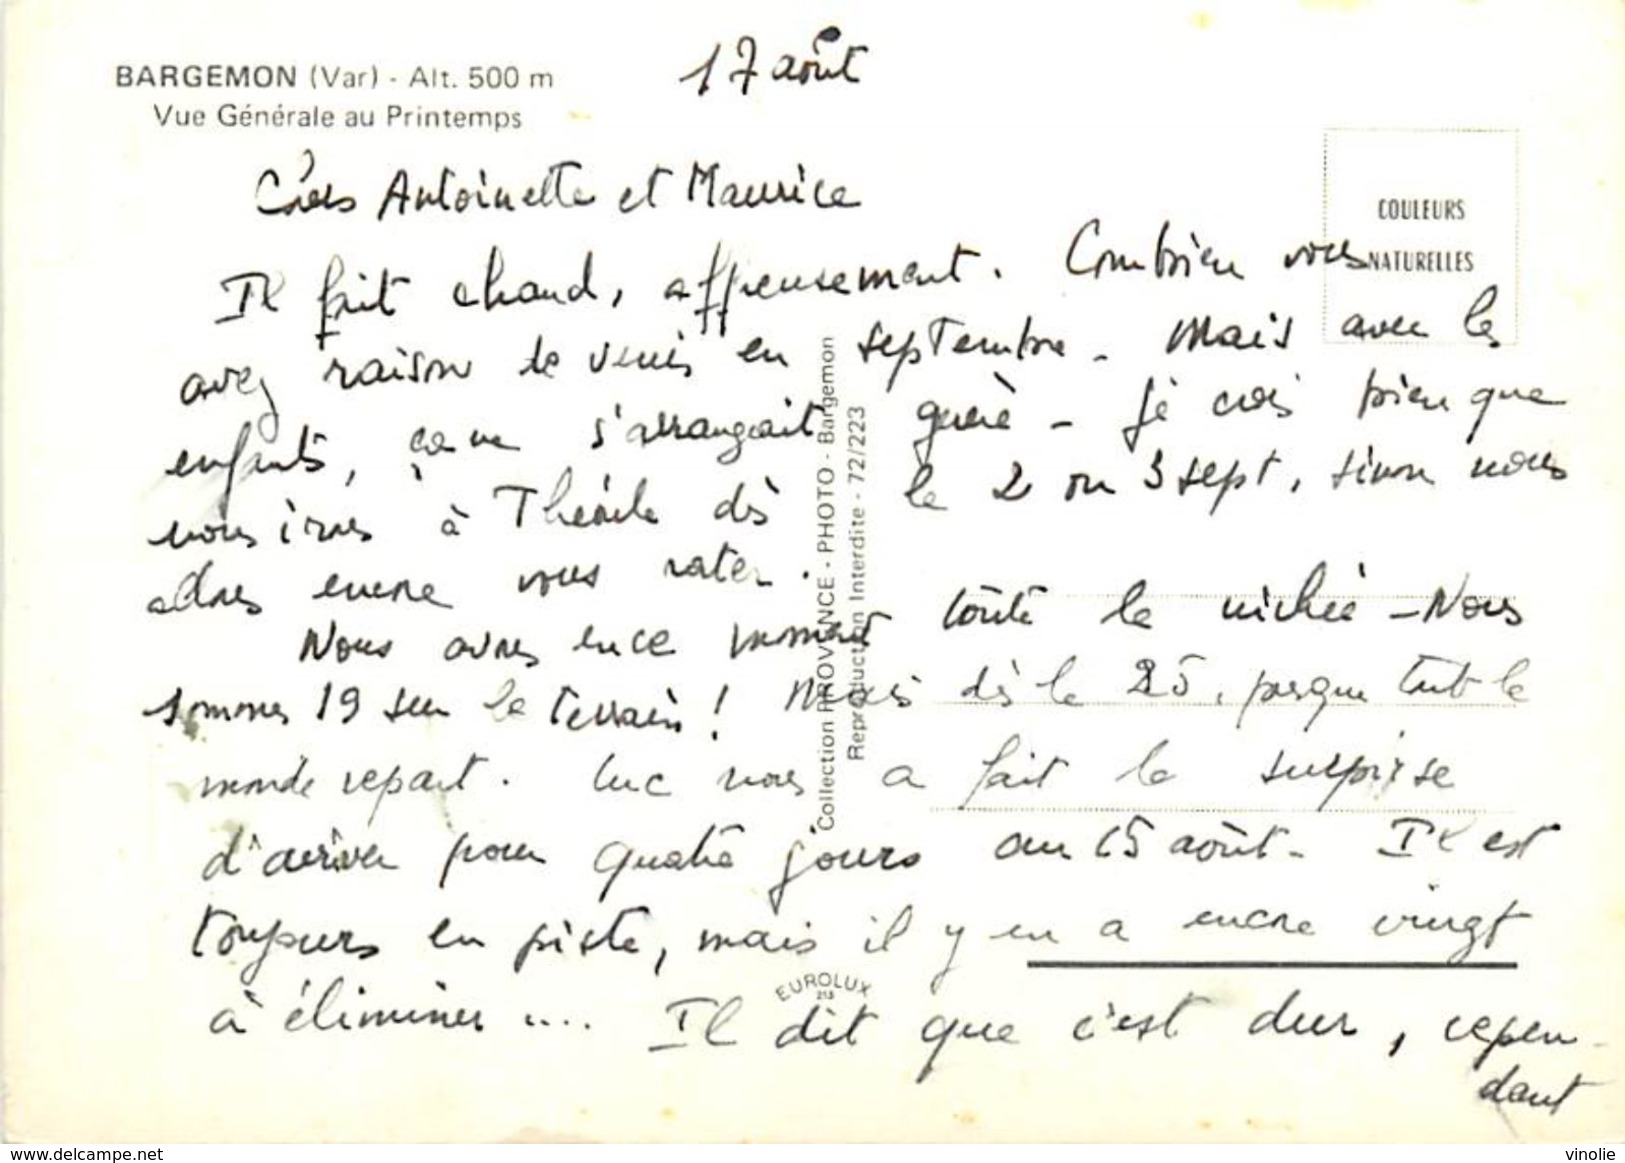 BARGEMON (Var) - Alt. 500 m
Vue Générale au Printemps
17 août
COULEURS
NATURELLES
Chers Antoinette et Maurice
Il fait chaud, affreusement. Combien vous
avez raison de venir en septembre - Mais avec les
enfants, ça ne s'arrangeait guère - Je crois bien que
nous irons à dès le 2 ou 3 sept, sinon nous
allons encore vous rater.
Nous avons en ce moment toute la nichée - Nous
sommes 19 sur le terrain ! Mais dès le 25, presque tout le
monde repart. Luc nous a fait la surprise
d'arriver pour quatre jours au 15 août - Il est
toujours en piste, mais il y en a encore vingt
à éliminer .... Il dit que c'est dur, cepen-
dant
Collection PROVENCE - PHOTO - Bargemon
Reproduction Interdite - 72/223
EUROLUX
213
www.delcampe.net
vinolie